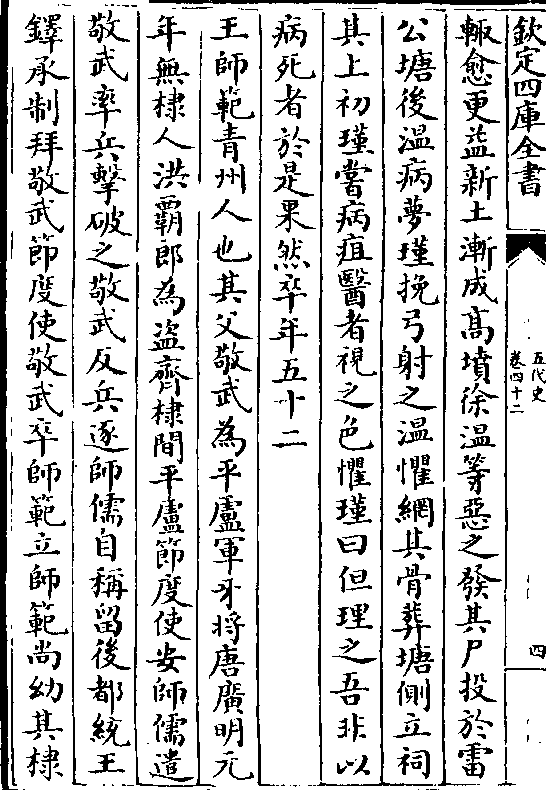 欽定四庫全書
五代史
卷四十二
四
輙愈更益新土漸成髙墳徐温等惡之發其尸投於雷
公塘後温病夢瑾挽弓射之温懼網其骨葬塘側立祠
其上初瑾嘗病疽醫者視之色懼瑾曰但理之吾非以
病死者於是果然卒年五十二
王師範青州人也其父敬武為平盧軍牙將唐廣明元
年無棣人洪霸郎為盗齊棣間平盧節度使安師儒遣
敬武率兵擊破之敬武反兵逐師儒自稱留後都統王
鐸承制拜敬武節度使敬武卒師範立師範尚幼其棣